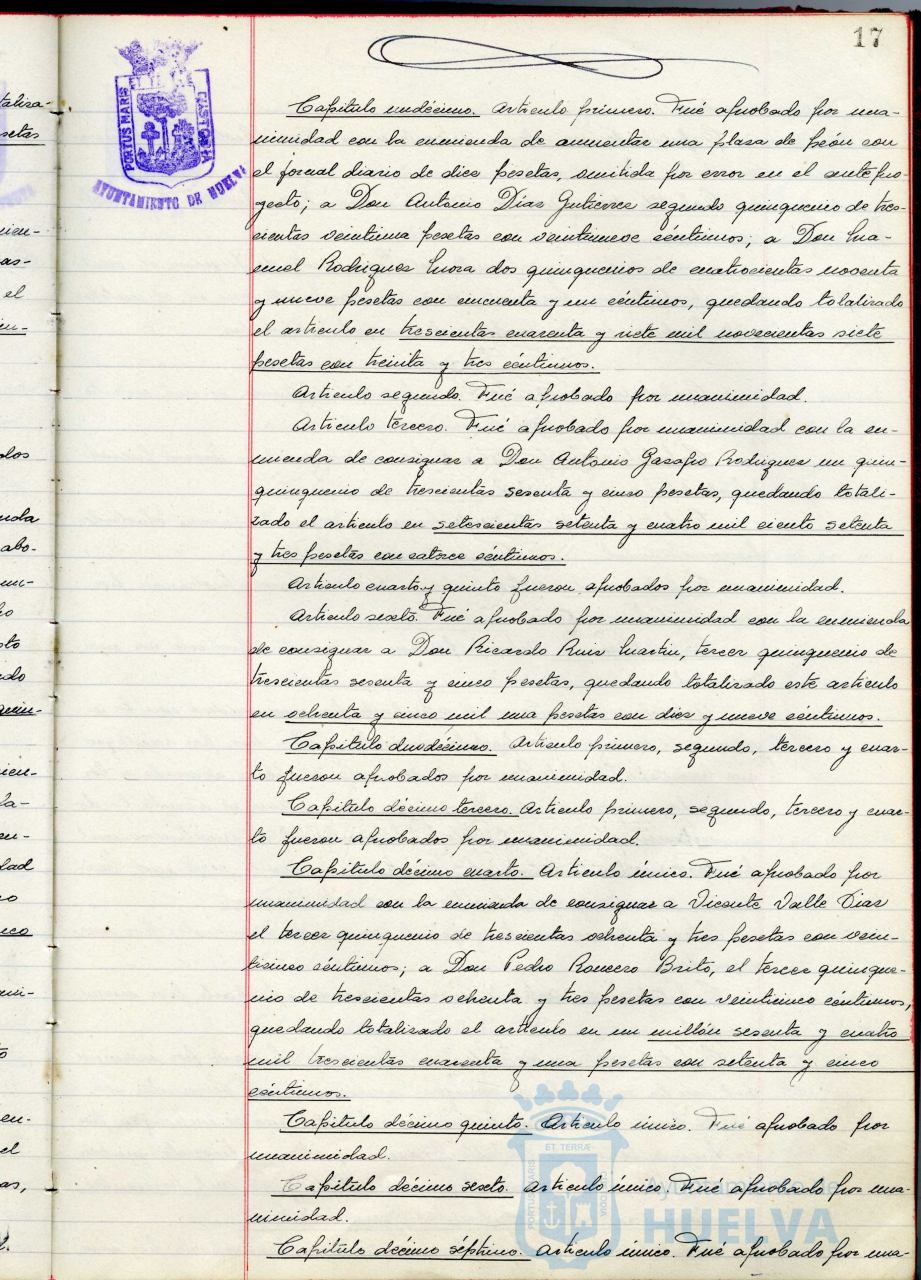 17
PORTUS MARIS ET TERRÆ CUSTODIA
AYUNTAMIENTO DE HUELVA
Capitulo undécimo. Articulo primero. Fué aprobado por una-
nimidad con la enmienda de aumentar una plaza de peón con
el jornal diario de diez pesetas, omitida por error en el antepro
yecto; a Don Antonio Díaz Gutierrez segundo quinquenio de tres-
cientas veintiuna pesetas con veintinueve céntimos; a Don Ma-
nuel Rodriguez Mora dos quinquenios de cuatrocientas noventa
y nueve pesetas con cincuenta y un céntimos, quedando totalizado
el articulo en trescientas cuarenta y siete mil novecientas siete
pesetas con treinta y tres céntimos.
Articulo segundo. Fué aprobado por unanimidad.
Articulo tercero. Fué aprobado por unanimidad con la en-
mienda de consignar a Don Antonio Garafo Rodriguez un quin-
quinquenio de trescientas sesenta y cinco pesetas, quedando totali-
zado el articulo en setescientas setenta y cuatro mil ciento setenta
y tres pesetas con catorce céntimos.
Articulo cuarto y quinto fueron aprobados por unanimidad.
Articulo sexto. Fué aprobado por unanimidad con la enmienda
de consignar a Don Ricardo Ruiz Martin, tercer quinquenio de
trescientas sesenta y cinco pesetas, quedando totalizado este articulo
en ochenta y cinco mil una pesetas con diez y nueve céntimos.
Capitulo duodécimo. Articulo primero, segundo, tercero y cuar-
to fueron aprobados por unanimidad.
Capitulo décimo tercero. Articulo primero, segundo, tercero y cuar-
to fueron aprobados por unanimidad.
Capitulo décimo cuarto. Articulo único. Fué aprobado por
unanimidad con la enmienda de consignar a Vicente Valle Diaz
el tercer quinquenio de trescientas ochenta y tres pesetas con vein-
ticinco céntimos; a Don Pedro Roncero Brito, el tercer quinque-
nio de trescientas ochenta y tres pesetas con veinticinco céntimos,
quedando totalizado el articulo en un millón sesenta y cuatro
mil trescientas cuarenta y una pesetas con setenta y cinco
céntimos.
Capitulo décimo quinto. Articulo único. Fué aprobado por
unanimidad.
Capitulo décimo sexto. Articulo único. Fué aprobado por una-
nimidad.
Capitulo décimo séptimo. Articulo único. Fué aprobado por una-
Ayuntamiento de
HUELVA